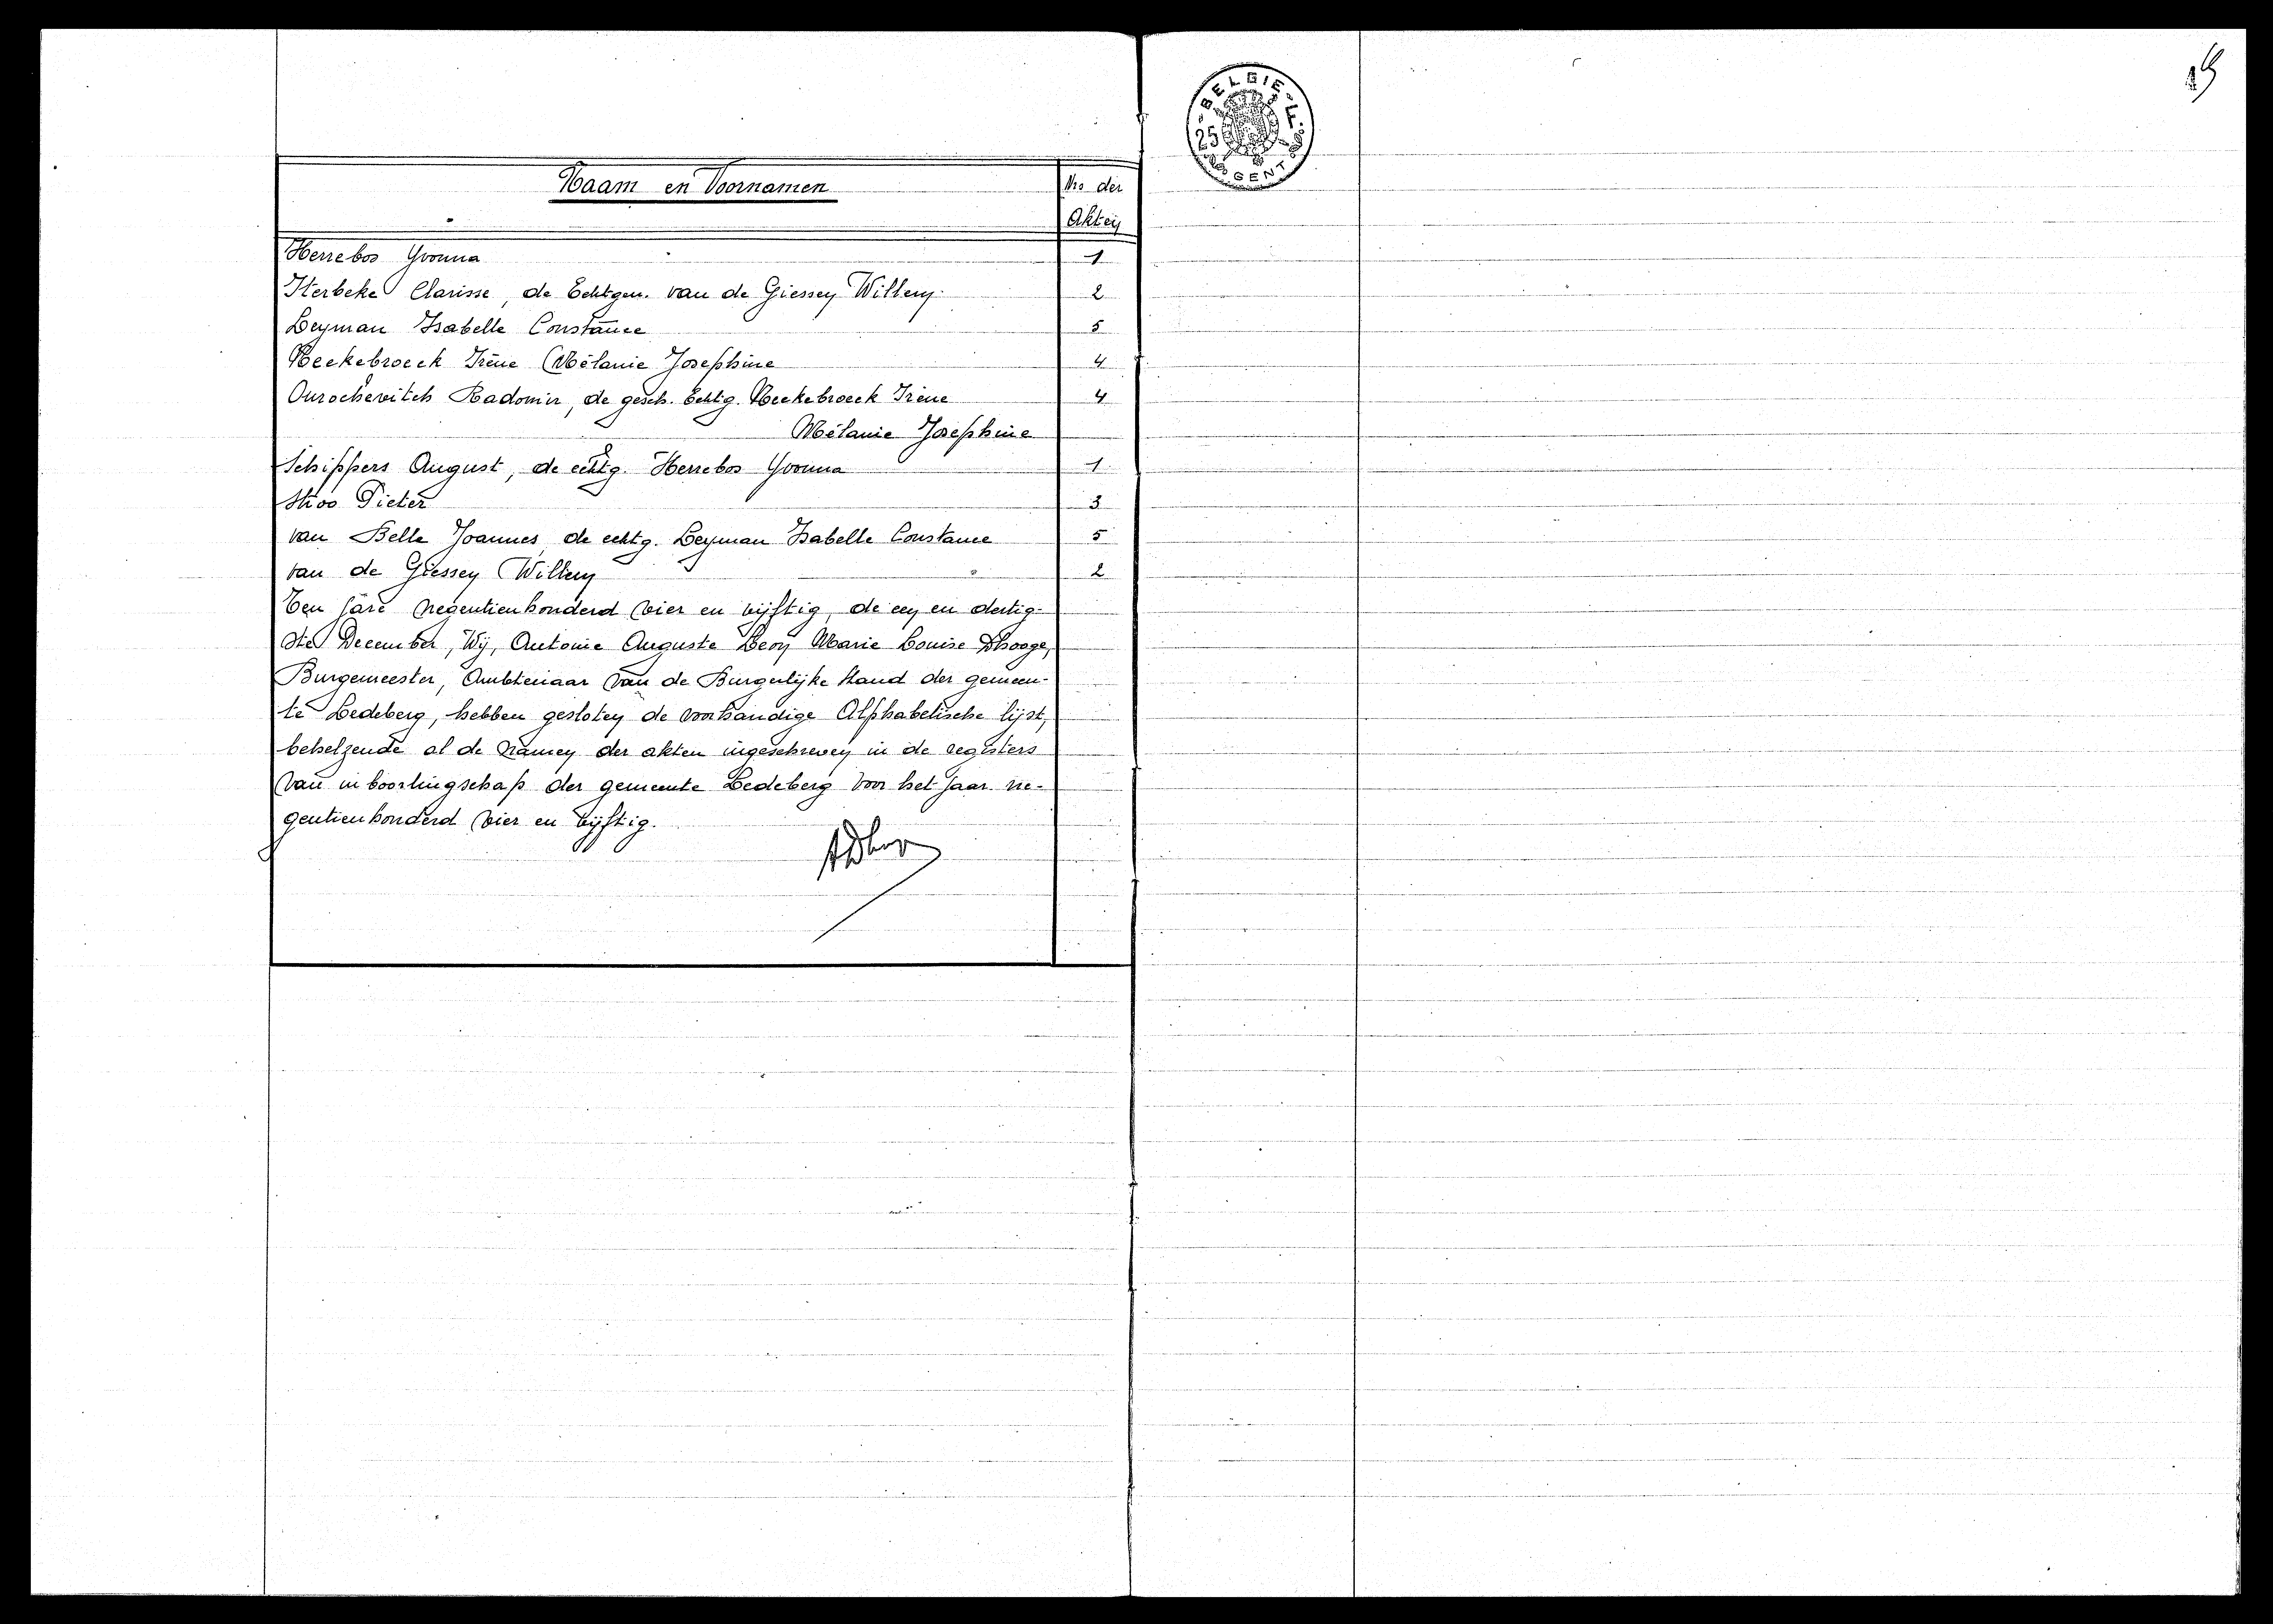 Naam en Voornamen
Nro der
Akten
Herrebos Yvonna 1
Iterbeke Clarisse, de Echtgen. van de Giessen Willem. 2
Leyman Isabelle Constance 5
Neckebroeck Irène Mélanie Josephine 4
Ourochevitch Radomir, de gesch. Echtg. Neckebroeck Irène 4
Mélanie Josephine
Schippers August, de echtg. Herrebos Yvonna 1
Stroo Pieter 3
van Belle Joannes, de echtg. Leyman Isabelle Constance 5
van de Giessen Willem 2
Ten jare negentienhonderd vier en vijftig, de een en dertig-
ste December, Wij, Antonie Auguste Leon Marie Louise Dhooge,
Burgemeester, Ambtenaar van de Burgerlijke Stand der gemeen-
te Ledeberg, hebben gesloten de voorhandige Alphabetische lijst,
behelzende al de namen der akten ingeschreven in de registers
van inboorlingschap der gemeente Ledeberg voor het jaar ne-
gentienhonderd vier en vijftig.
BELGIE
25 F.
GENT